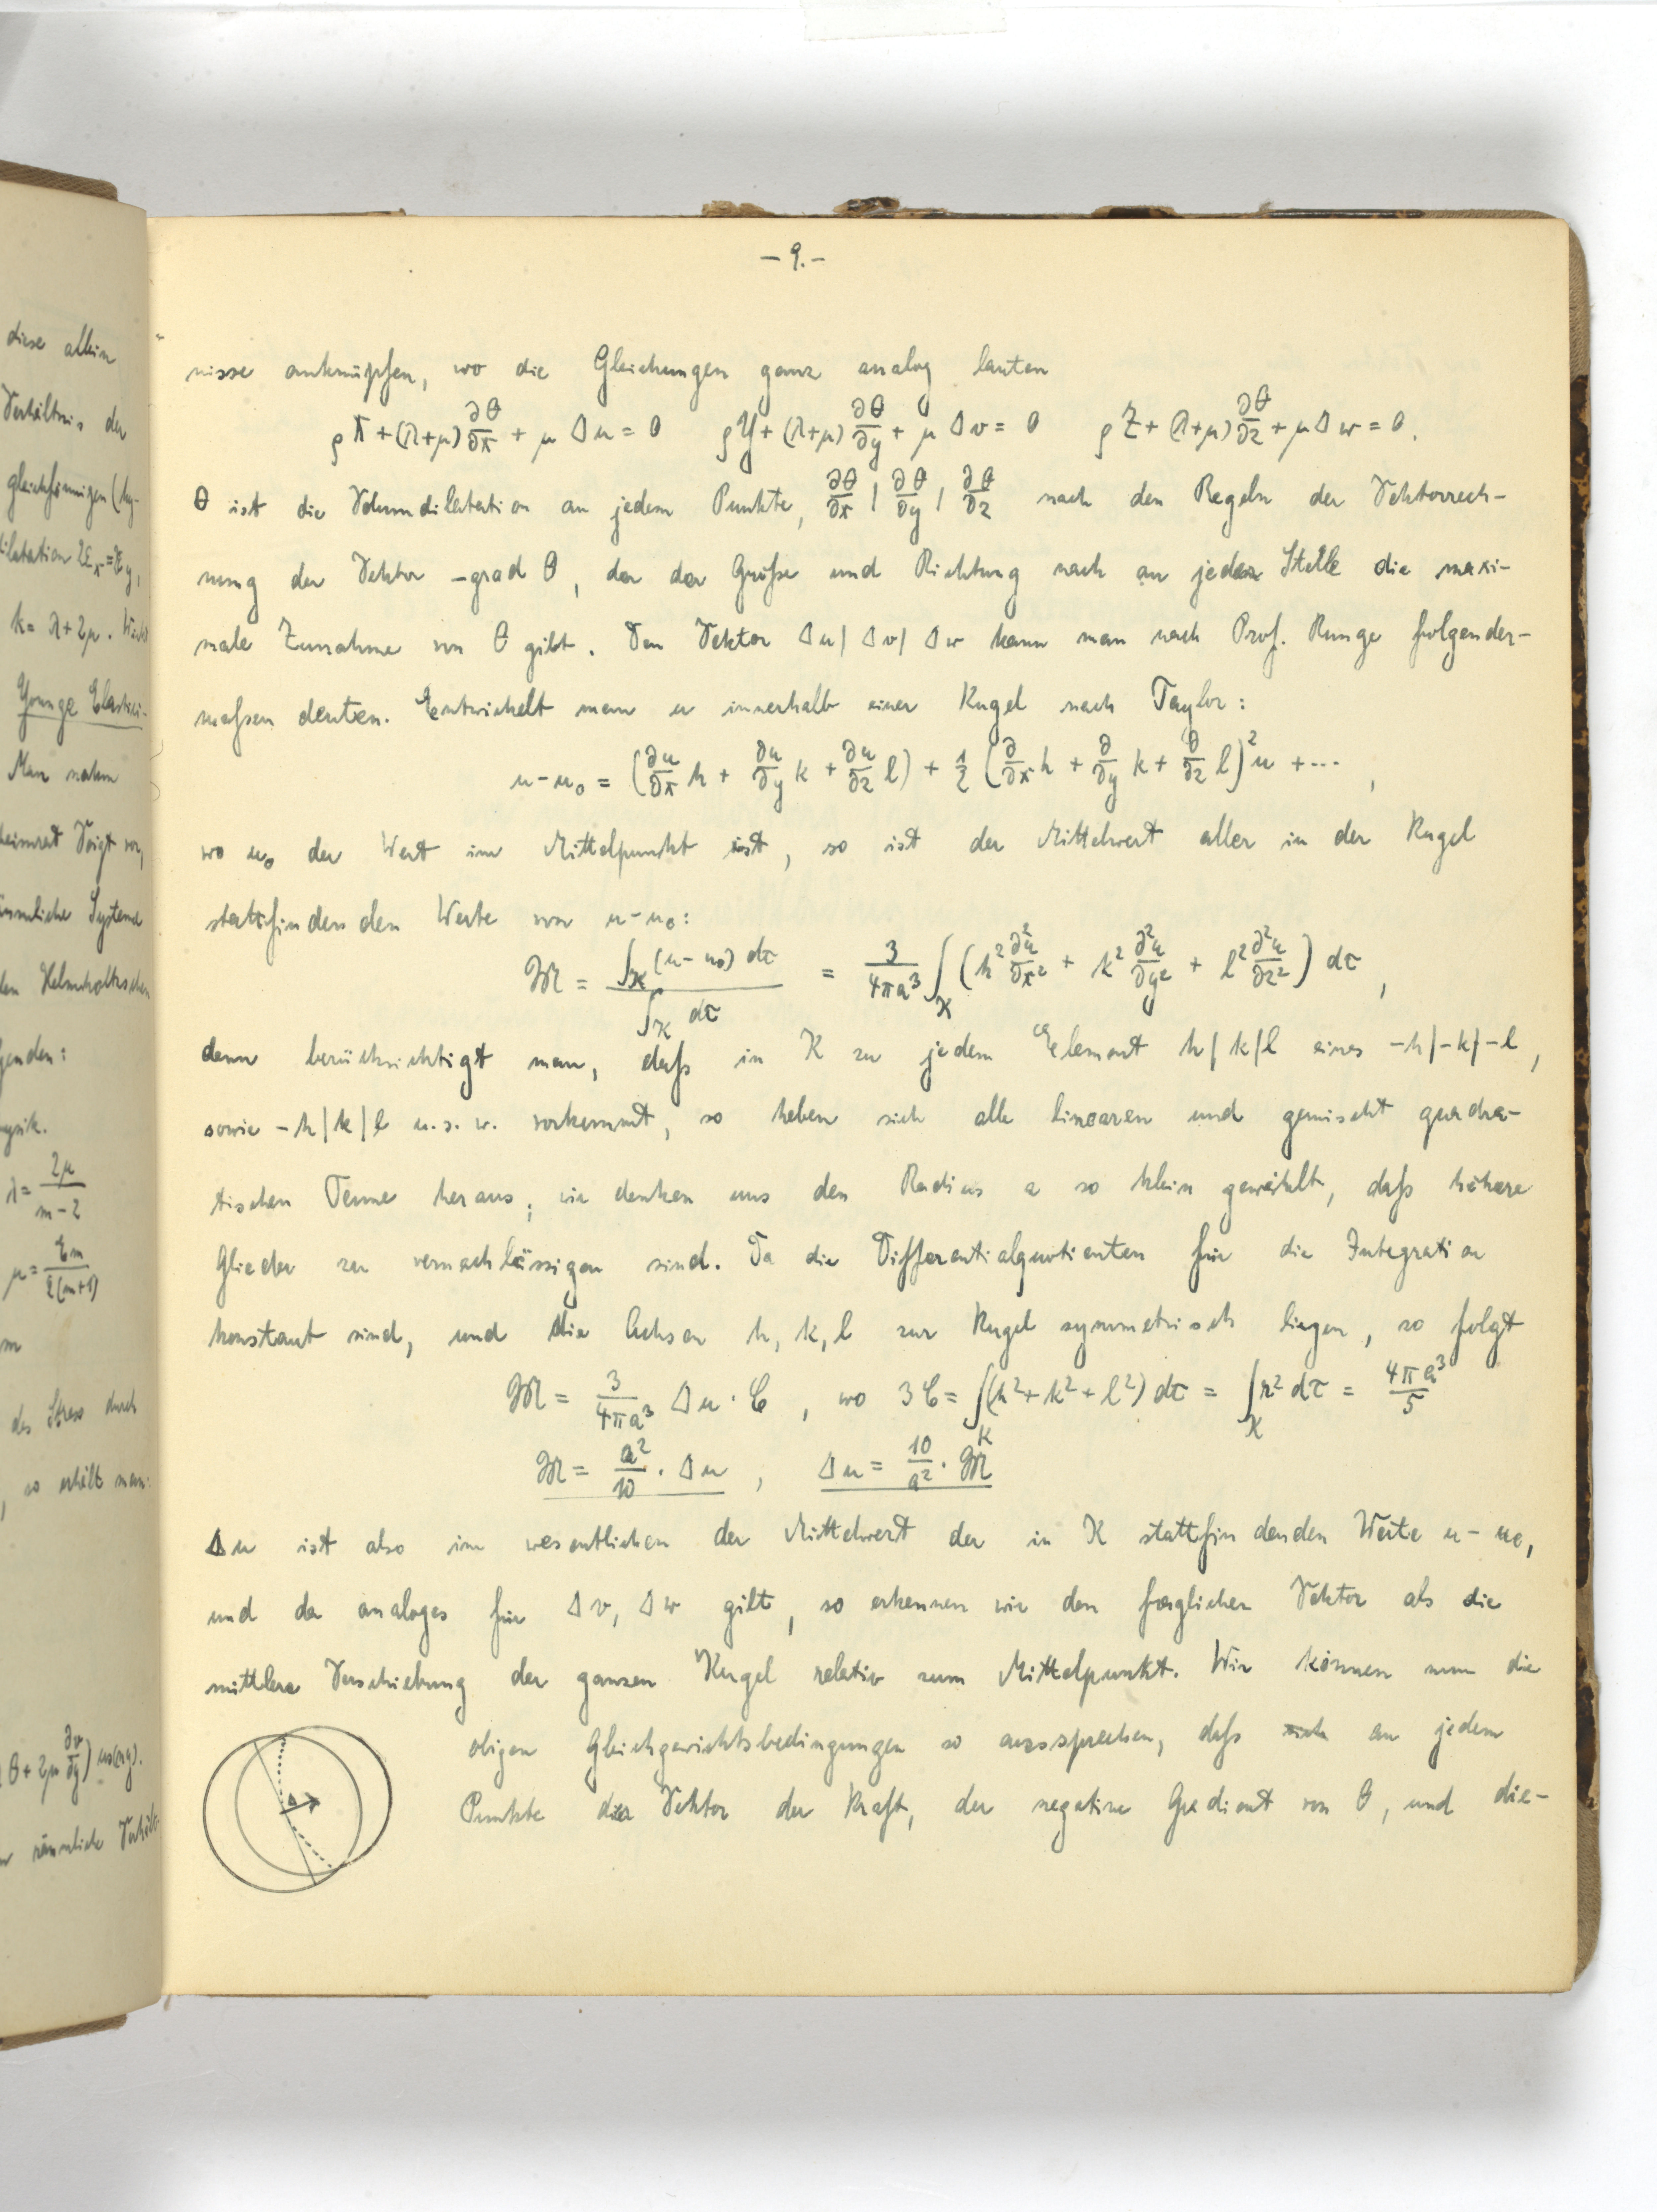 diese allein
Verhältnis der
gleichförmigen (hy-
k = λ+2μ.
Younge Elastici-
Man nahm
Voigt
Systeme
Helmholtzschen
genden:
λ = 2μ/(m-2)
μ = Em/(2(m+1))
des Stress durch
, so erhält man:
θ + 2μ ∂v/∂y) cos(ny).
räumliche
– 9. –
nisse anknüpfen, wo die Gleichungen ganz analog lauten
ρX + (λ+μ) ∂θ/∂x + μ Δu = 0 ρY + (λ+μ) ∂θ/∂y + μ Δv = 0 ρZ + (λ+μ) ∂θ/∂z + μ Δw = 0.
θ ist die Volumdilatation an jedem Punkte, ∂θ/∂x | ∂θ/∂y | ∂θ/∂z nach den Regeln der Vektorrech-
nung der Vektor –grad θ, der der Größe und Richtung nach an jeder Stelle die maxi-
male Zunahme von θ gibt. Den Vektor Δu | Δv | Δw kann man nach Prof. Runge folgender-
maßen deuten. Entwickelt man u innerhalb einer Kugel nach Taylor:
u – u₀ = (∂u/∂x h + ∂u/∂y k + ∂u/∂z l) + 1/2 (∂/∂x h + ∂/∂y k + ∂/∂z l)² u + ··· ,
wo u₀ der Wert im Mittelpunkt ist, so ist der Mittelwert aller in der Kugel
stattfindenden Werte von u – u₀:
M = ∫_K (u – u₀) dτ / ∫_K dτ = 3/(4πa³) ∫_K (h² ∂²u/∂x² + k² ∂²u/∂y² + l² ∂²u/∂z²) dτ ,
denn berücksichtigt man, daß in K zu jedem Element h | k | l eines –h | –k | –l ,
sowie –h | k | l u. s. w. vorkommt, so heben sich alle linearen und gemischt quadra-
tischen Terme heraus; wir denken uns den Radius a so klein gewählt, daß höhere
Glieder zu vernachlässigen sind. Da die Differentialquotienten für die Integration
konstant sind, und die Achsen h, k, l zur Kugel symmetrisch liegen, so folgt
M = 3/(4πa³) Δu · C , wo 3C = ∫_K (h² + k² + l²) dτ = ∫_K r² dτ = 4πa³/5
M = a²/10 · Δu , Δu = 10/a² · M
Δu ist also im wesentlichen der Mittelwert der in K stattfindenden Werte u – u₀,
und da analoges für Δv, Δw gilt, so erkennen wir den fraglichen Vektor als die
mittlere Verschiebung der ganzen Kugel relativ zum Mittelpunkt. Wir können nun die
obigen Gleichgewichtsbedingungen so aussprechen, daß sich an jedem
Punkte der Vektor der Kraft, der negative Gradient von θ, und die-